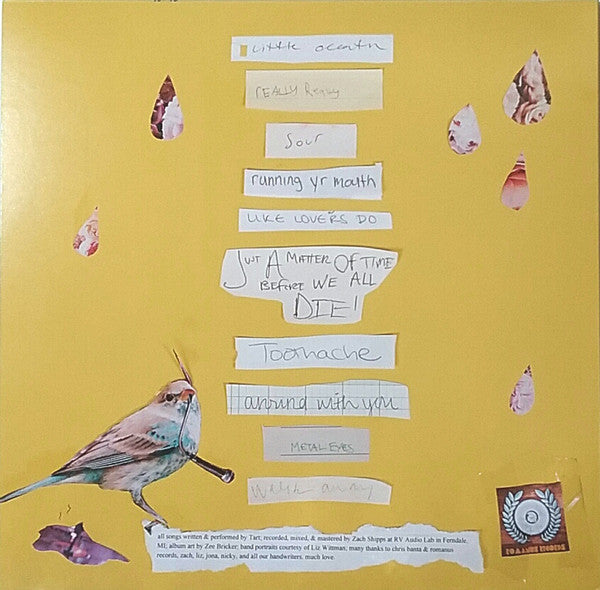 little death
REALLY Ready
Sour
running yr mouth
LIKE LOVERS DO
JUST A MATTER OF TIME
BEFORE WE ALL
DIE!
Toothache
around with you
METAL EYES
walk away
all songs written & performed by Tart; recorded, mixed, & mastered by Zach Shipps at RV Audio Lab in Ferndale,
MI; album art by Zee Bricker; band portraits courtesy of Liz Wittman; many thanks to chris banta & romanus
records, zach, liz, jona, nicky, and all our handwriters. much love.
ROMANUS RECORDS